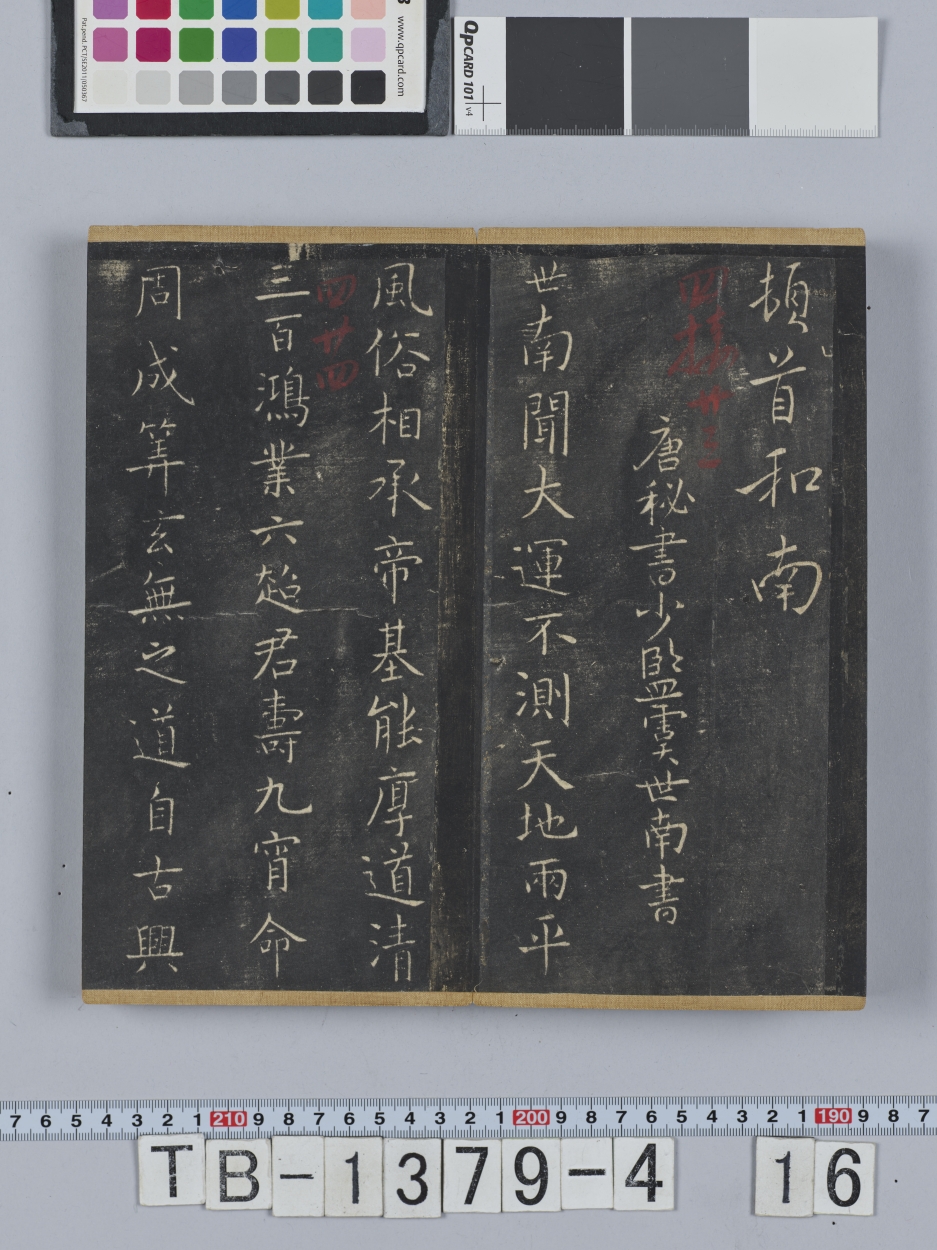 www.qpcard.com
Pat.pend. PCT/SE2011/050367
QPCARD 101 v4
頓首和南
唐秘書少監虞世南書
世南聞大運不測天地兩平
風俗相承帝基能厚道清
三百鴻業六超君壽九宵命
周成筭玄無之道自古興
四廿四
7 6 5 4 3 2 1 210 9 8 7 6 5 4 3 2 1 200 9 8 7 6 5 4 3 2 1 190 9 8 7
TB-1379-4 16